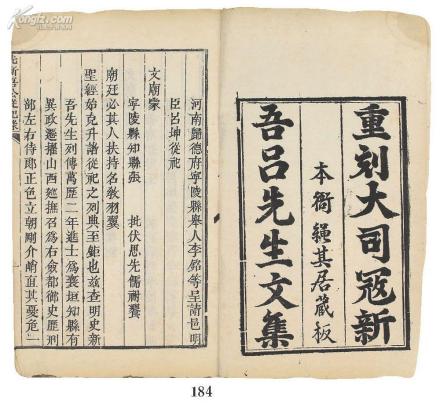 Kongfz.com
重刻大司寇新
本衙繩其居藏板
吾呂先生文集
河南歸德府寧陵縣舉人李銘等呈請邑明
臣呂坤從祀
文廟蒙
寧陵縣知縣張 批伏思先儒祔饗
朝廷必其人扶持名教羽翼
聖經始克升諸從祀之列典至鉅也兹查明史新
吾先生列傳萬歷二年進士爲襄垣知縣有
異政遷擢山西廵撫召爲右僉都御史歷刑
部左右侍郎正色立朝剛介峭直其憂危一
184